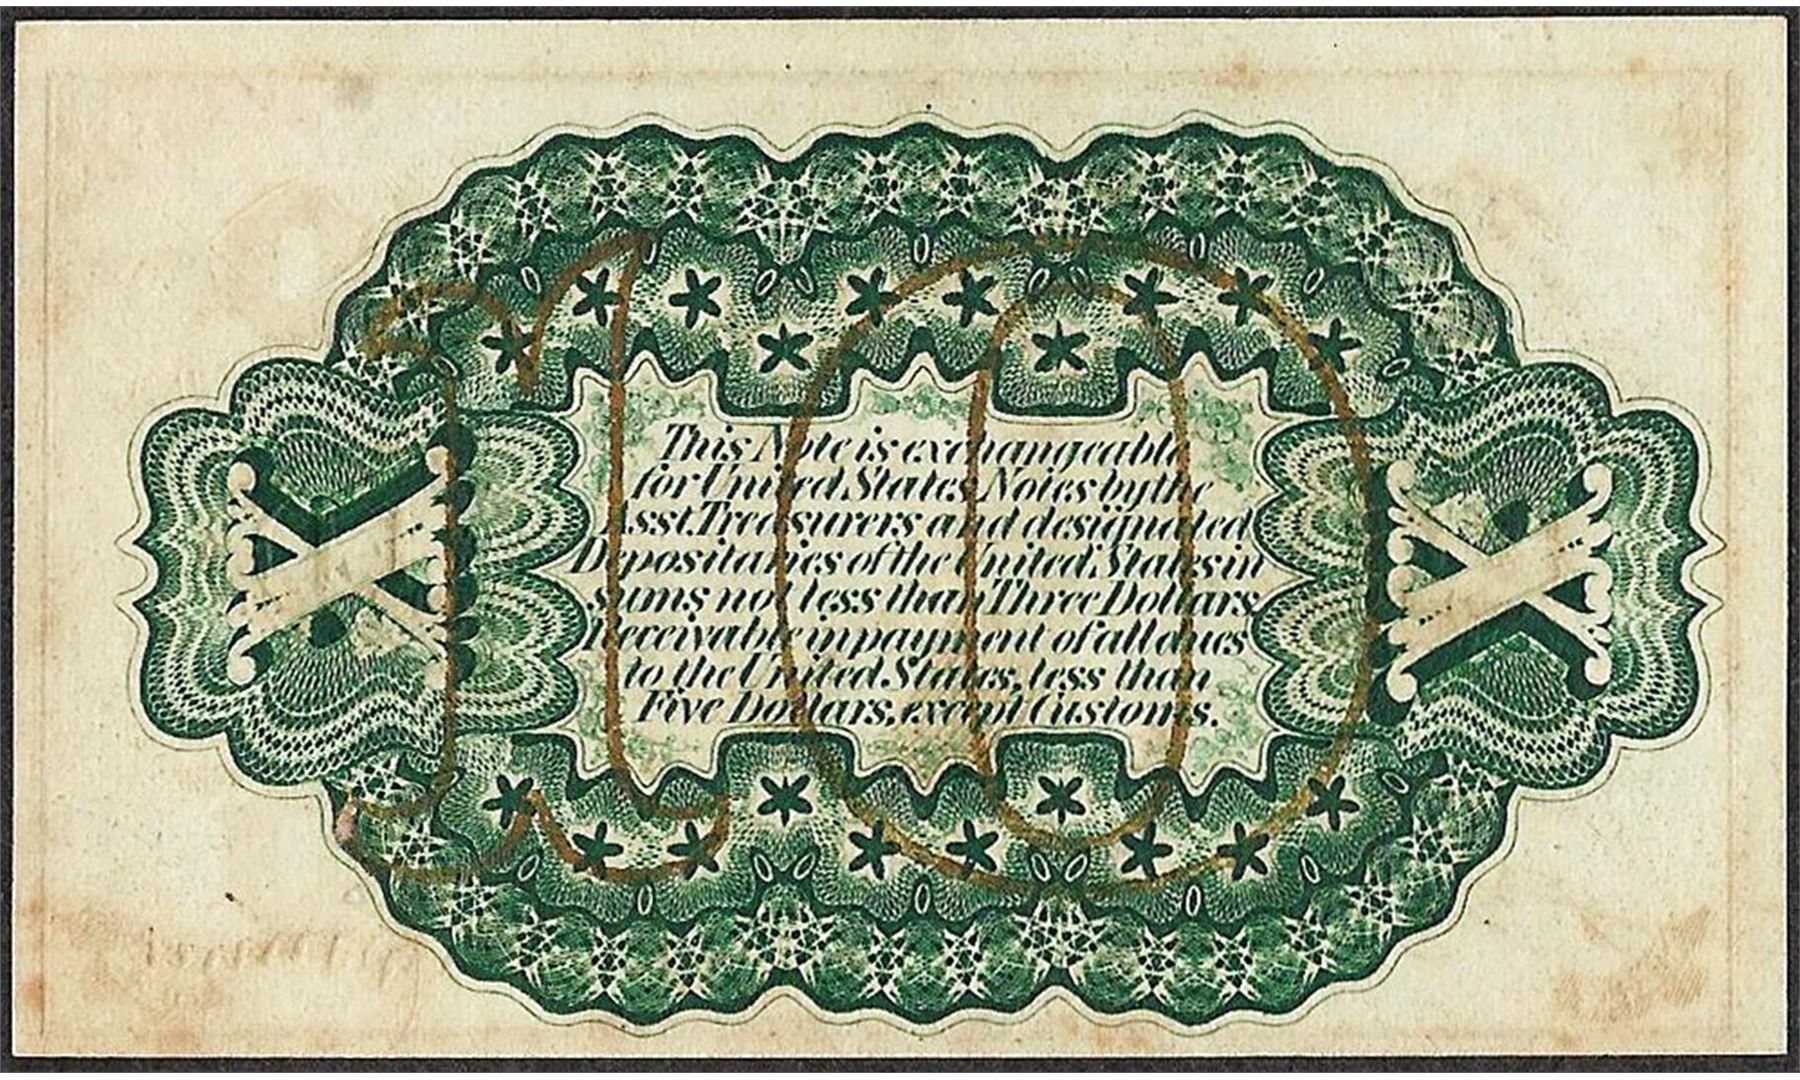 10
X X
This Note is exchangeable
for United States Notes by the
Asst. Treasurers and designated
Depositaries of the United States in
sums not less than Three Dollars.
Receivable in payment of all dues
to the United States, less than
Five Dollars, except Customs.